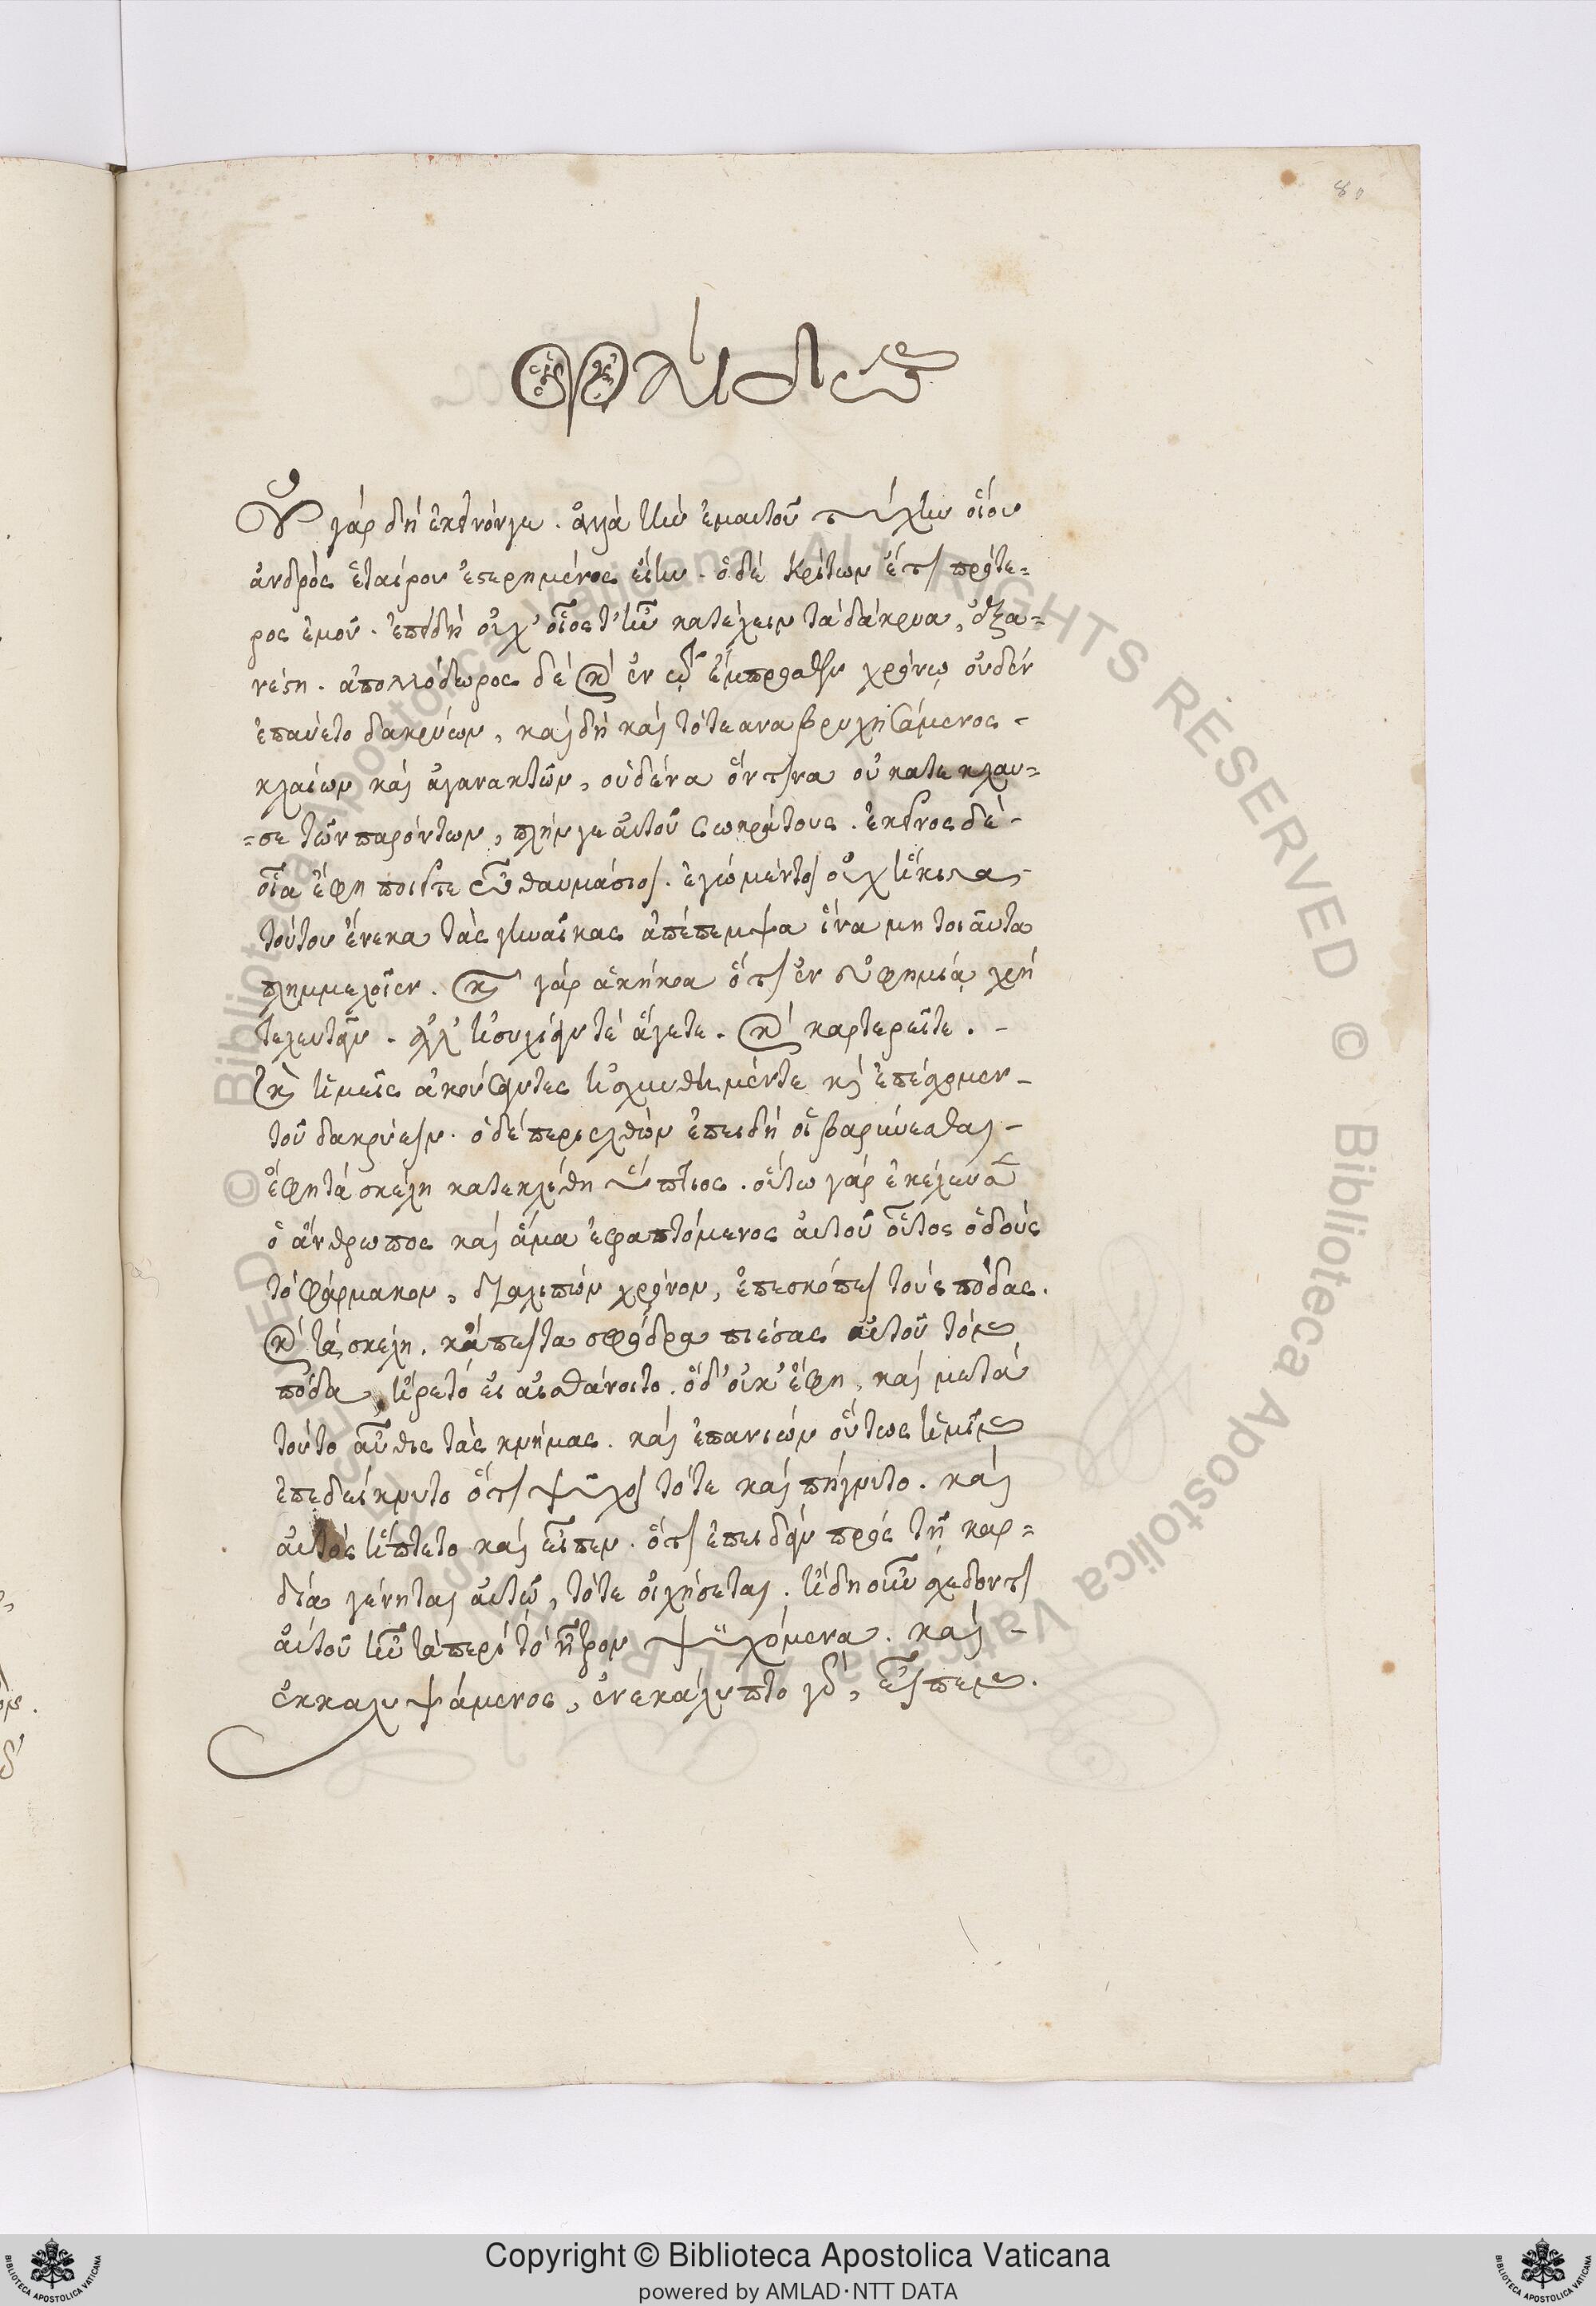 80
Φαίδων
Οὐ γάρ δή ἐκεῖνόνγε. ἀλλά τὴν ἐμαυτοῦ τύχην οἵου
ἀνδρός ἑταίρου ἐστερημένος εἴην. ὁ δέ Κρίτων ἔτι πρότε=
ρος ἐμοῦ. ἐπειδή οὐχ' οἷος τ' ἦν κατέχειν τά δάκρυα, ἐξα=
νέστη. ἀπολλόδωρος δέ καί ἐν τῷ ἔμπροσθεν χρόνῳ οὐδέν
ἐπαύετο δακρύων, καί δή καί τότε αναβρυχησάμενος -
κλαίων καί ἀγανακτῶν, οὐδένα ὅντινα οὐ κατεκλαυ=
=σε τῶν παρόντων, πλήν γε αὐτοῦ Σωκράτους. ἐκεῖνος δέ -
οἷα ἔφη ποιεῖτε ὦ θαυμάσιοι. ἐγώ μέντοι οὐχ ἥκιστα -
τούτου ἕνεκα τὰς γυναῖκας ἀπέπεμψα ἵνα μη τοιαῦτα
πλημμελοῖεν. καί γάρ ἀκήκοα ὅτι ἐν εὐφημίᾳ χρή
τελευτᾷν. ἀλλ' ἡσυχίαν τέ ἄγετε. καί καρτερεῖτε. -
καὶ ἡμεῖς ἀκούσαντες ᾐσχύνθημέντε καί ἐπέσχομεν -
τοῦ δακρύειν. ὁ δέ περιελθών ἐπειδή οἱ βαρύνεσθαι -
ἔφη τά σκέλη κατεκλίθη ὕπτιος. οὕτω γάρ ἐκέλευσε
ὁ ἄνθρωπος καί ἅμα ἐφαπτόμενος αὐτοῦ οὗτος ὁ δούς
τό φάρμακον, διαλιπών χρόνον, ἐπεσκόπει τούς πόδας.
καί τά σκέλη. κἄπειτα σφόδρα πιέσας αὐτοῦ τόν
πόδα, ἤρετό εἰ αἰσθάνοιτο. ὁ δ' οὐκ' ἔφη, καί μετά
τοῦτο αὖθις τάς κνήμας. καί ἐπανιών οὕτως ἡμῖν
ἐπεδείκνυτο ὅτι ψύχοι τότε καί πήγνυτο. καί
αὐτός ἥπτετο καί εἶπεν. ὅτι ἐπειδάν πρός τῇ καρ=
δίᾳ γένηται αὐτῷ, τότε οἰχήσεται. ἤδη οὖν σχεδόν τι
αὐτοῦ ἦν τά περί τό ἦτρον ψυχόμενα. καί -
ἐκκαλυψάμενος, ἐνεκάλυπτο γδ', εἶπεν.
Copyright © Biblioteca Apostolica Vaticana
powered by AMLAD·NTT DATA